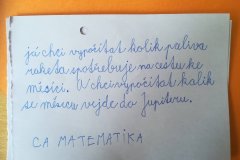 já chci vypočítat kolik paliva
raketa spotřebuje na cestu ke
měsíci. A chci vypočítat kolik
se měsícu vejde do Jupiteru.
CA MATEMATIKA